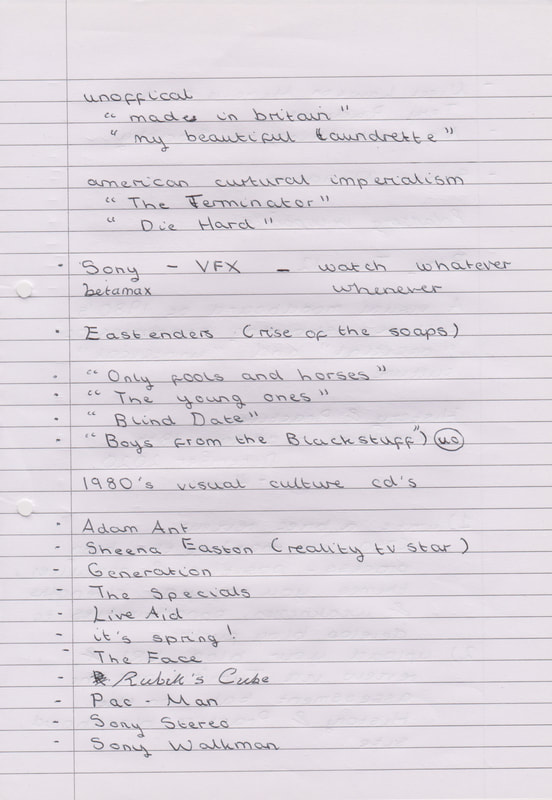 unoffical
" made in britain "
" my beautiful Laundrette "
american curtural imperialism
" The Terminator "
" Die Hard "
- Sony - VFX - watch whatever
betamax whenever
- East enders (rise of the soaps)
- " Only fools and horses "
- " The young ones "
- " Blind Date "
- " Boys from the Blackstuff ")
1980's visual culture cd's
- Adam Ant
- Sheena Easton (reality tv star)
- Generation
- The Specials
- Live Aid
- it's spring!
- The Face
- Rubik's Cube
- Pac - Man
- Sony Stereo
- Sony Walkman